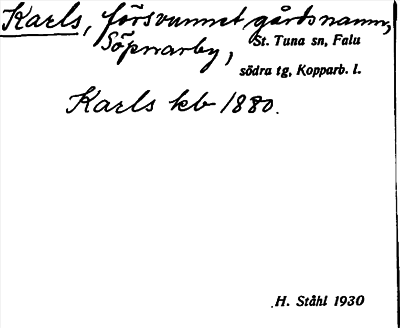 Karls, försvunnet gårdsnamn,
Söpnarby, St. Tuna sn, Falu
södra tg, Kopparb. l.
Karls kb 1880.
H. Ståhl 1930